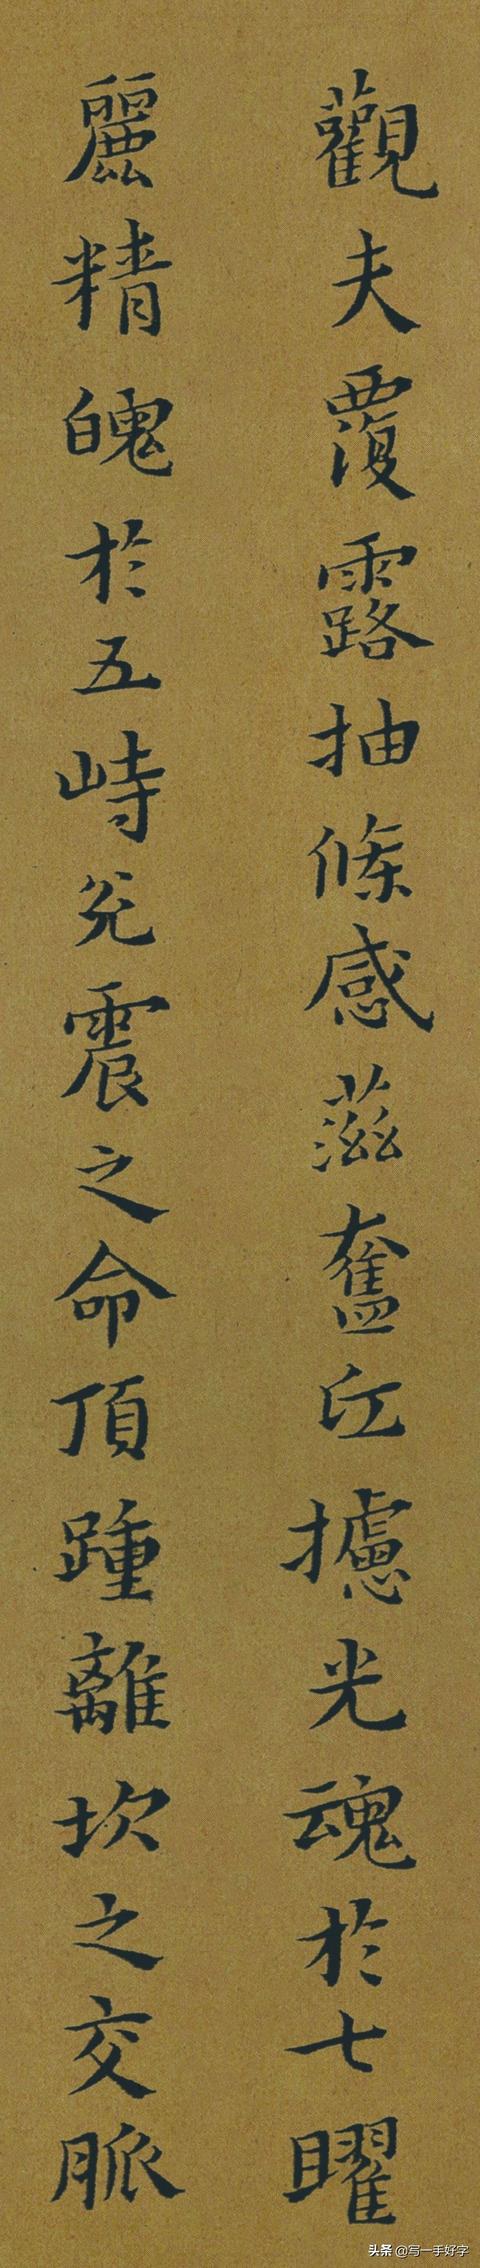 觀夫覆露抽條感薀奮丘攄光魂於七曜
麗精魄於五峙兊震之命頂踵離坎之交脈
头条 @写一手好字